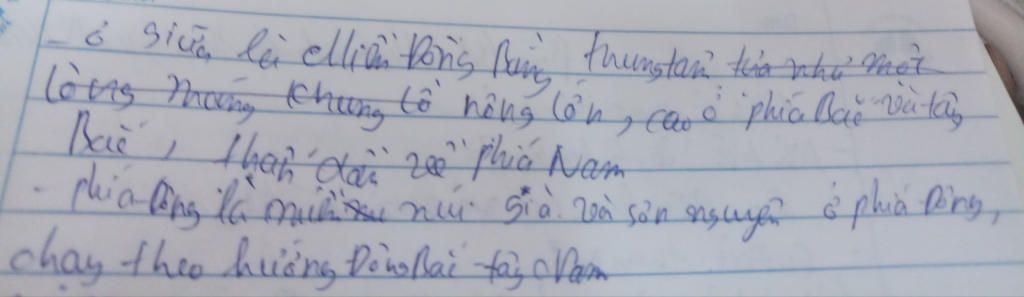 - ở giữa là Miền Đồng Bằng trung tâm tựa như một
lòng máng khổng lồ nông lớn, cao ở phía Bắc và tây
Bắc, thấp dần về phía Nam
- phía Đông là miền núi già và sơn nguyên ở phía Đông,
chạy theo hướng Đông Bắc tây Nam